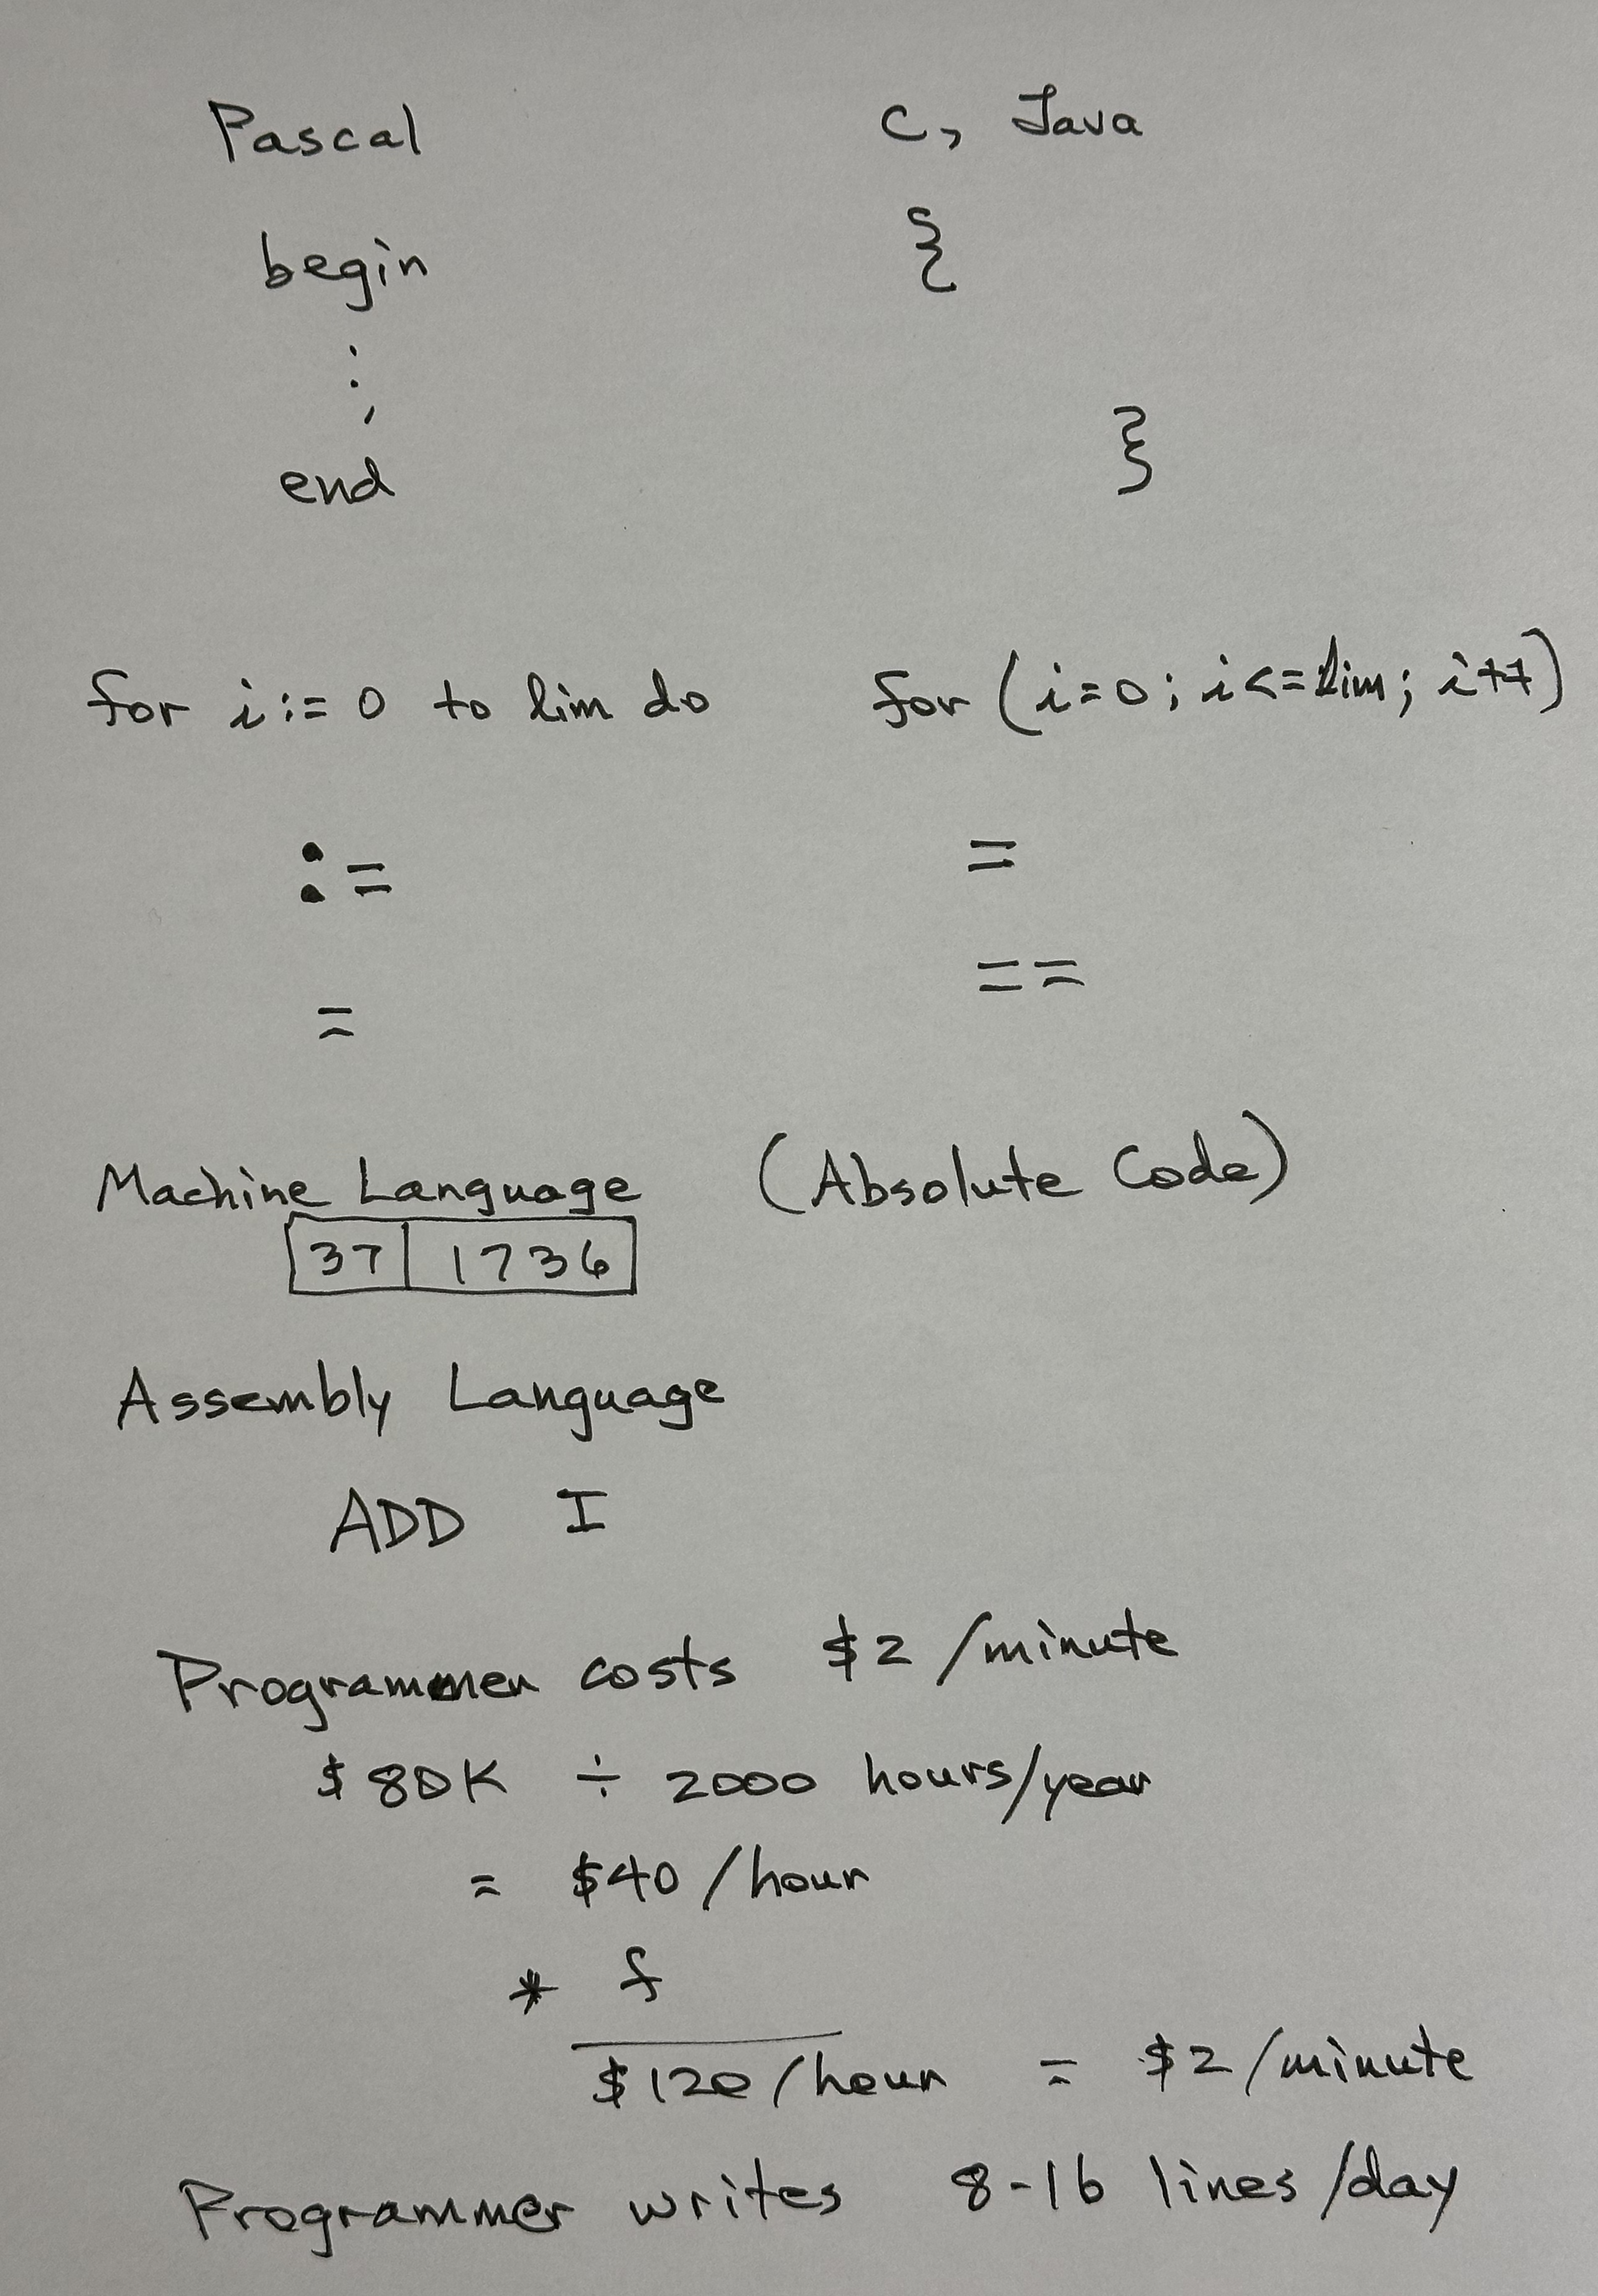 Pascal C, Java
begin {
:
,
end }
for i := 0 to lim do for (i=0; i<=lim; i++)
:= =
= ==
Machine Language (Absolute Code)
37 1736
Assembly Language
ADD I
Programmer costs $2 /minute
$80K ÷ 2000 hours/year
= $40 /hour
* f
$120 /hour = $2 /minute
Programmer writes 8-16 lines /day